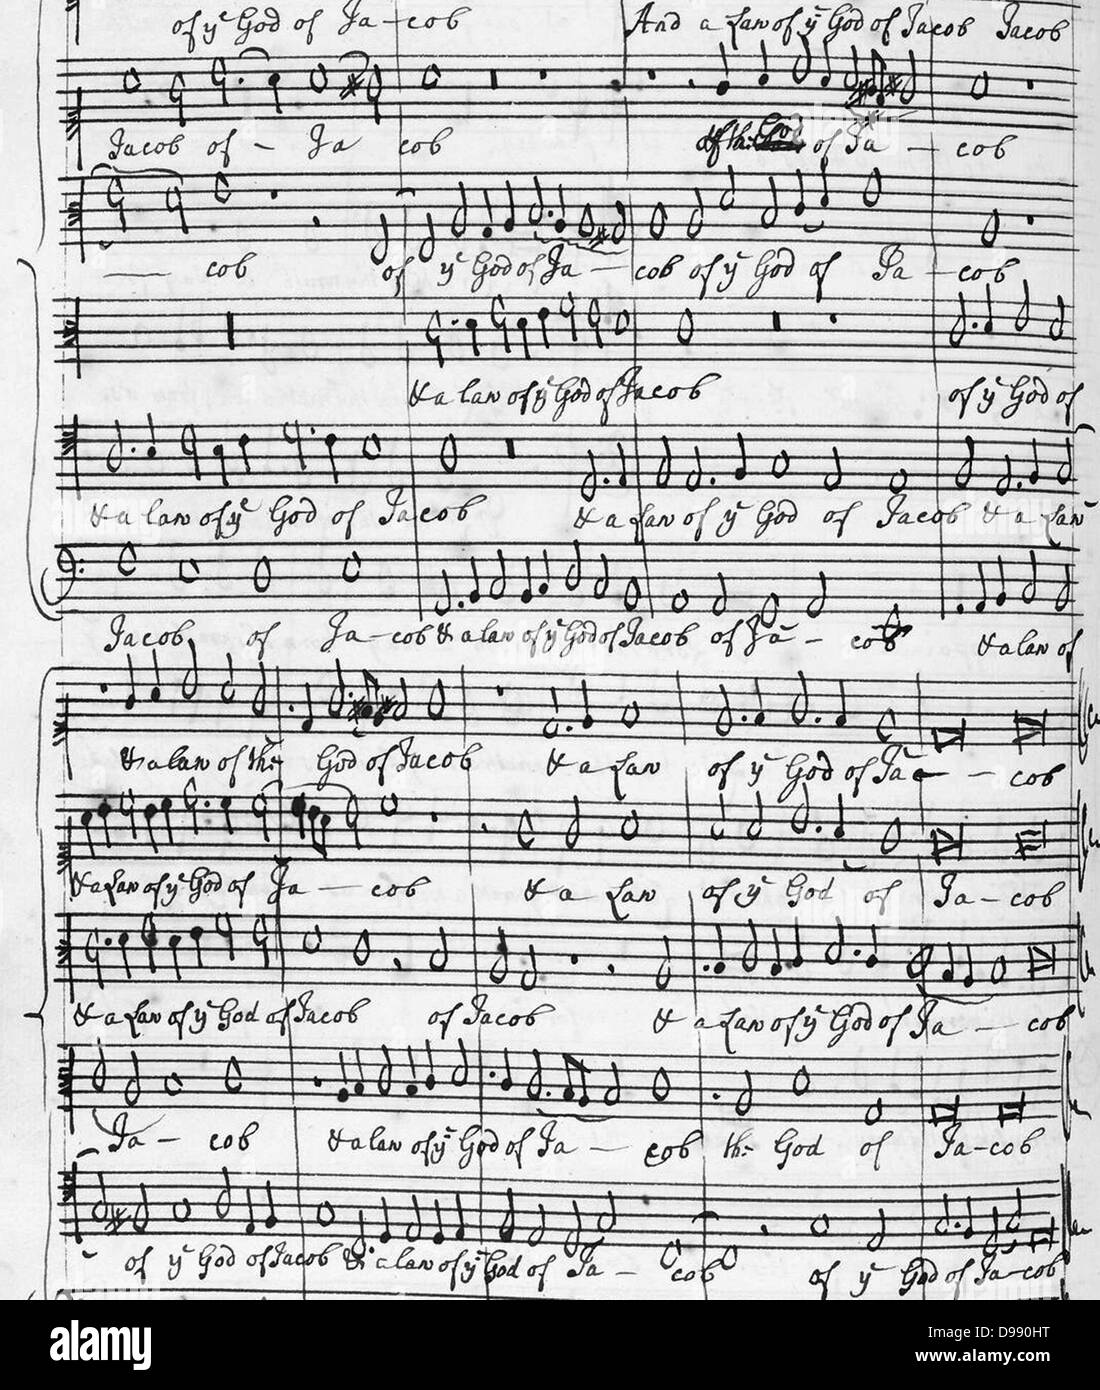 of yͤ God of Ja-cob And a Law of yͤ God of Jacob Jacob
Jacob of - Ja cob of Ja - cob
cob of yͤ God of Ja - cob of yͤ God of Ja - cob
& a law of yͤ God of Jacob of yͤ God of
& a law of yͤ God of Jacob & a Law of yͤ God of Jacob & a Law
Jacob of Ja-cob & a law of yͤ God of Jacob of Ja - cob & a law of
& a law of the God of Jacob & a Law of yͤ God of Ja - cob
& a Law of yͤ God of Ja - cob & a Law of yͤ God of Ja-cob
& a Law of yͤ God of Jacob of Jacob & a Law of yͤ God of Ja - cob
Ja - cob & a law of yͤ God of Ja - cob the God of Ja-cob
of yͤ God of Jacob & a law of yͤ God of Ja - cob of yͤ God of Ja-cob
alamy
Image ID: D990HT
www.alamy.com